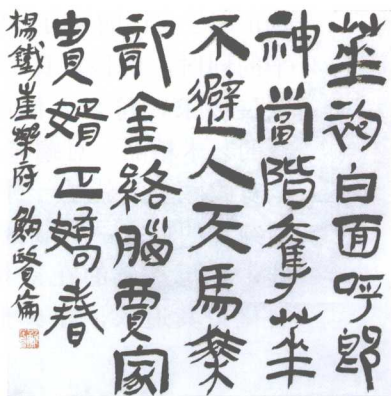 華袍白面呼郎
神當階奪華
不避人天馬
部金絡腦賈家
貴婿正嬌春
楊鐵崖樂府 鮑賢倫